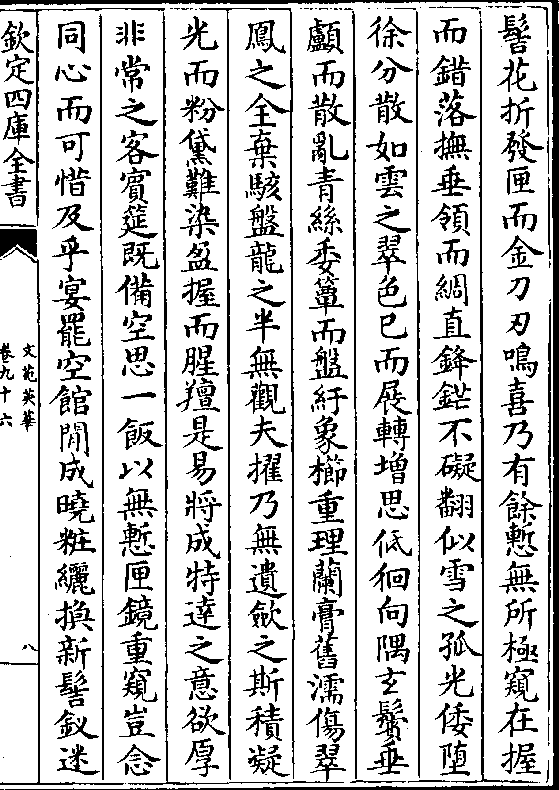 髻花折發匣而金刀刃鳴喜乃有餘慙無所極窺在握
而錯落撫垂領而綢直鋒鋩不礙翻似雪之孤光倭堕
徐分散如雲之翠色已而展轉增思低徊向隅玄鬢垂
顱而散亂青絲委簟而盤紆象櫛重理蘭膏舊濡傷翠
鳳之全棄駭盤龍之半無觀夫擢乃無遺斂之斯積凝
光而粉黛難染盈握而腥羶是易將成特達之意欲厚
非常之客賓筵既備空思一飯以無慙匣鏡重窺豈念
同心而可惜及乎宴罷空館閒成曉粧纚換新髻釵迷
欽定四庫全書
文苑英華
卷九十六
八